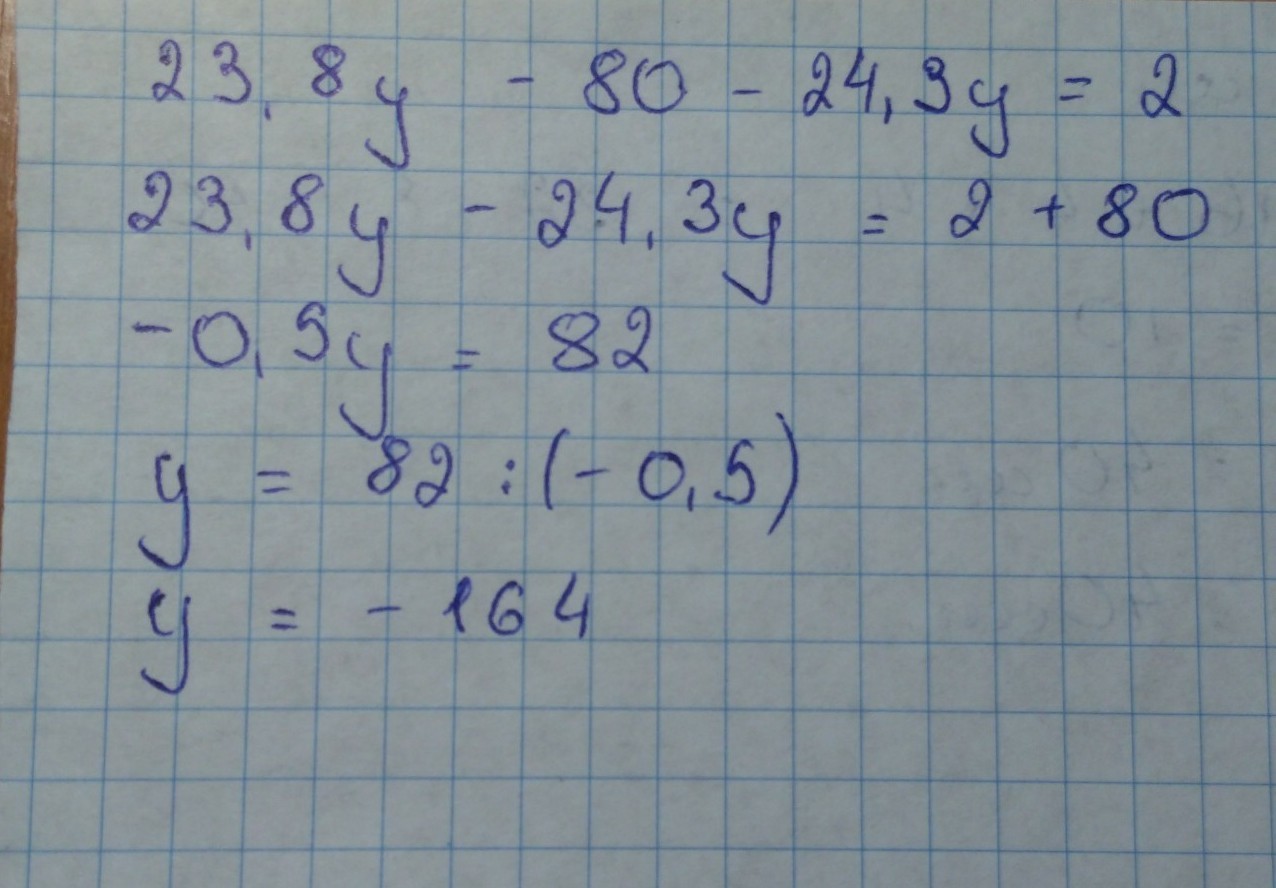 23,8y - 80 - 24,3y = 2
23,8y - 24,3y = 2 + 80
-0,5y = 82
y = 82 : (- 0,5)
y = - 164